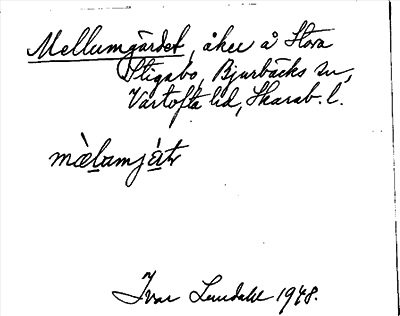 Mellumgärdet, åker å Stora
Stigabo, Bjurbäcks sn,
Vartofta hd, Skarab. l.
mæ̀lamjátr
Ivar Lundahl 1948.